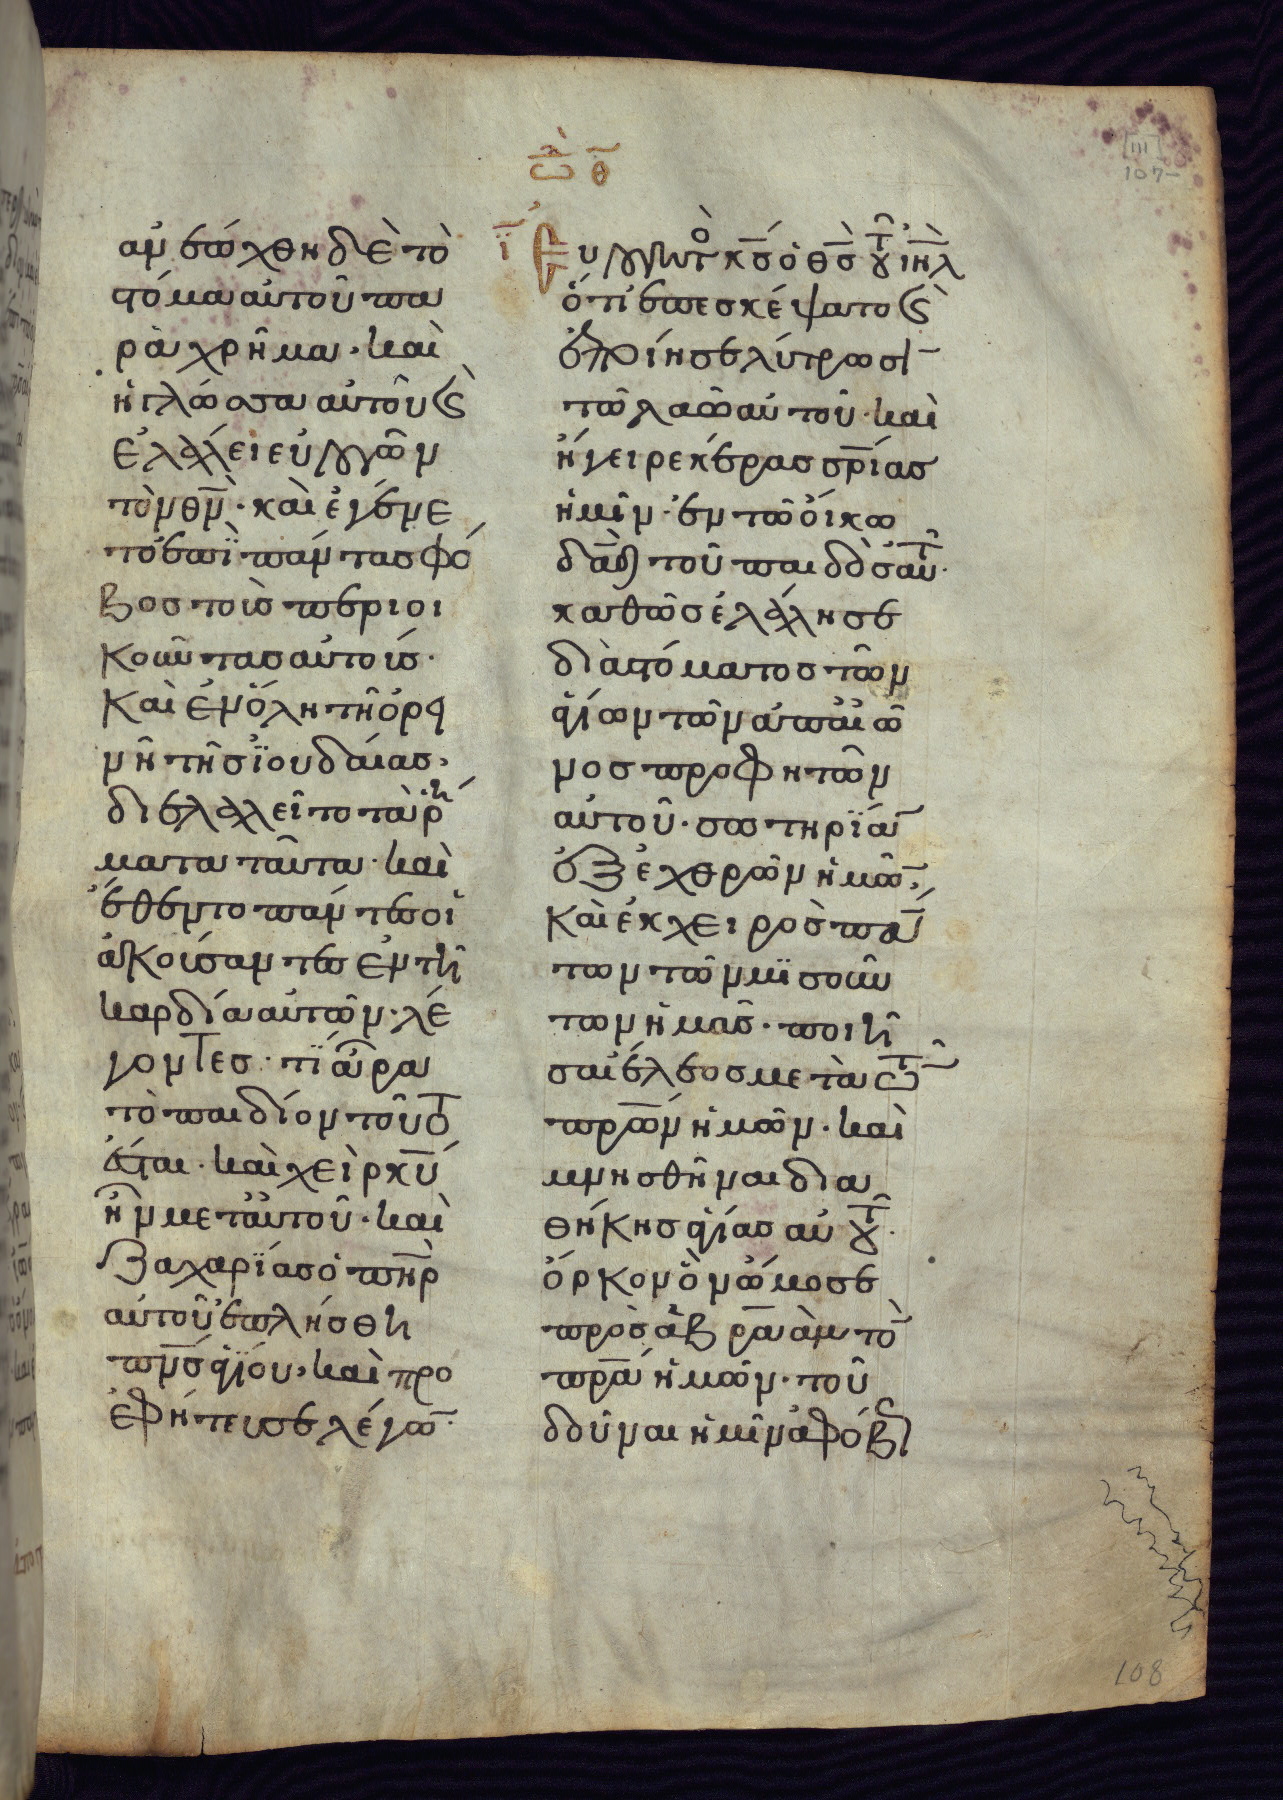 ᾨ Θ
[III]
107
ανεώχθη δὲ τὸ
στόμα αὐτοῦ πα
ραχρῆμα · καὶ
ἡ γλῶσσα αὐτοῦ κ(αὶ)
ἐλάλει εὐλογῶν
τὸν θν̅ · καὶ ἐγένε
το ἐπὶ πάντας φό
βος τοὺς περιοι
κοῦντας αὐτούς ·
καὶ ἐν ὅλη τῆ ὀρει
νῆ τῆς ἰουδαίας ·
διελαλεῖτο τὰ ῥή
ματα ταῦτα · καὶ
ἔθεντο πάντες οἱ
ἀκούσαντες ἐν τῆ
καρδία αὐτῶν · λέ
γοντες · τί ἄρα
τὸ παιδίον τοῦτο
ἔσται · καὶ χεὶρ κυ̅
ἦν μετ' αὐτοῦ · καὶ
Ζαχαρίας ὁ πη̅ρ
αὐτοῦ ἐπλήσθη
πν̅ς ἁγίου · καὶ προ
εφήτευσε λέγων ·
ι̅ Εὐλογητὸ(ς) κς̅ ὁ θς̅ τοῦ ιη̅λ
ὅτι ἐπεσκέψατο κ(αὶ)
ἐποίησε λύτρωσιν
τῶ λαῶ αὐτοῦ · καὶ
ἤγειρε κέρας σρ̅ίας
ἡμῖν · ἐν τῶ οἴκω
δα̅δ τοῦ παιδὸς αὐτοῦ ·
καθὼς ἐλάλησε
διὰ στόματος τῶν
ἁγίων τῶν ἀπ' αἰῶ
νος προφητῶν
αὐτοῦ · σωτηρίαν
ἐξ ἐχθρῶν ἡμῶν ·
καὶ ἐκ χειρὸς πάν
των τῶν μισούν
των ἡμᾶς · ποιῆ
σαι ἔλεος μετὰ τῶν
πρω̅ν ἡμῶν · καὶ
μνησθῆναι δια
θήκης ἁγίας αὐτοῦ ·
ὅρκον ὃν ὤμοσε
πρὸς ἀβραὰμ τὸν
πρ̅α ἡμῶν · τοῦ
δοῦναι ἡμῖν ἀφόβως
108